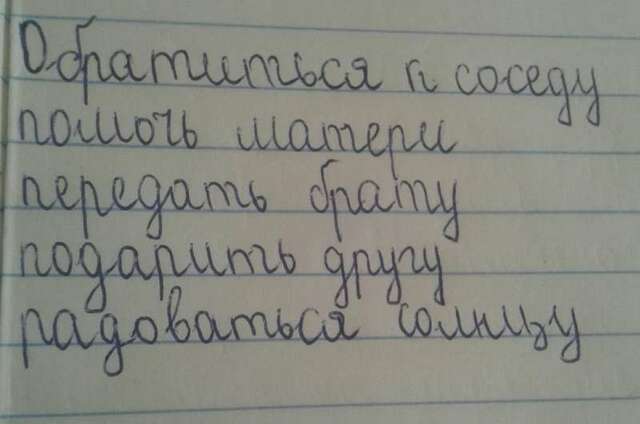 Обратиться к соседу
помочь матери
передать брату
подарить другу
радоваться солнцу